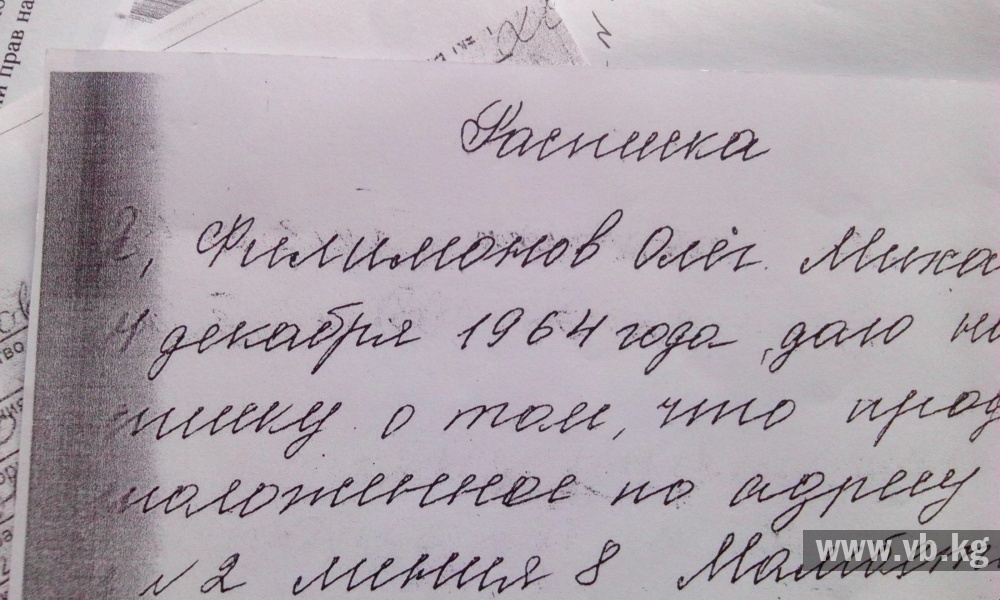 прав на
Расписка
Я, Филимонов Олег Миха
4 декабря 1964 года, даю на
писку о том, что прод
положенное по адресу
№2 линия 8
www.vb.kg